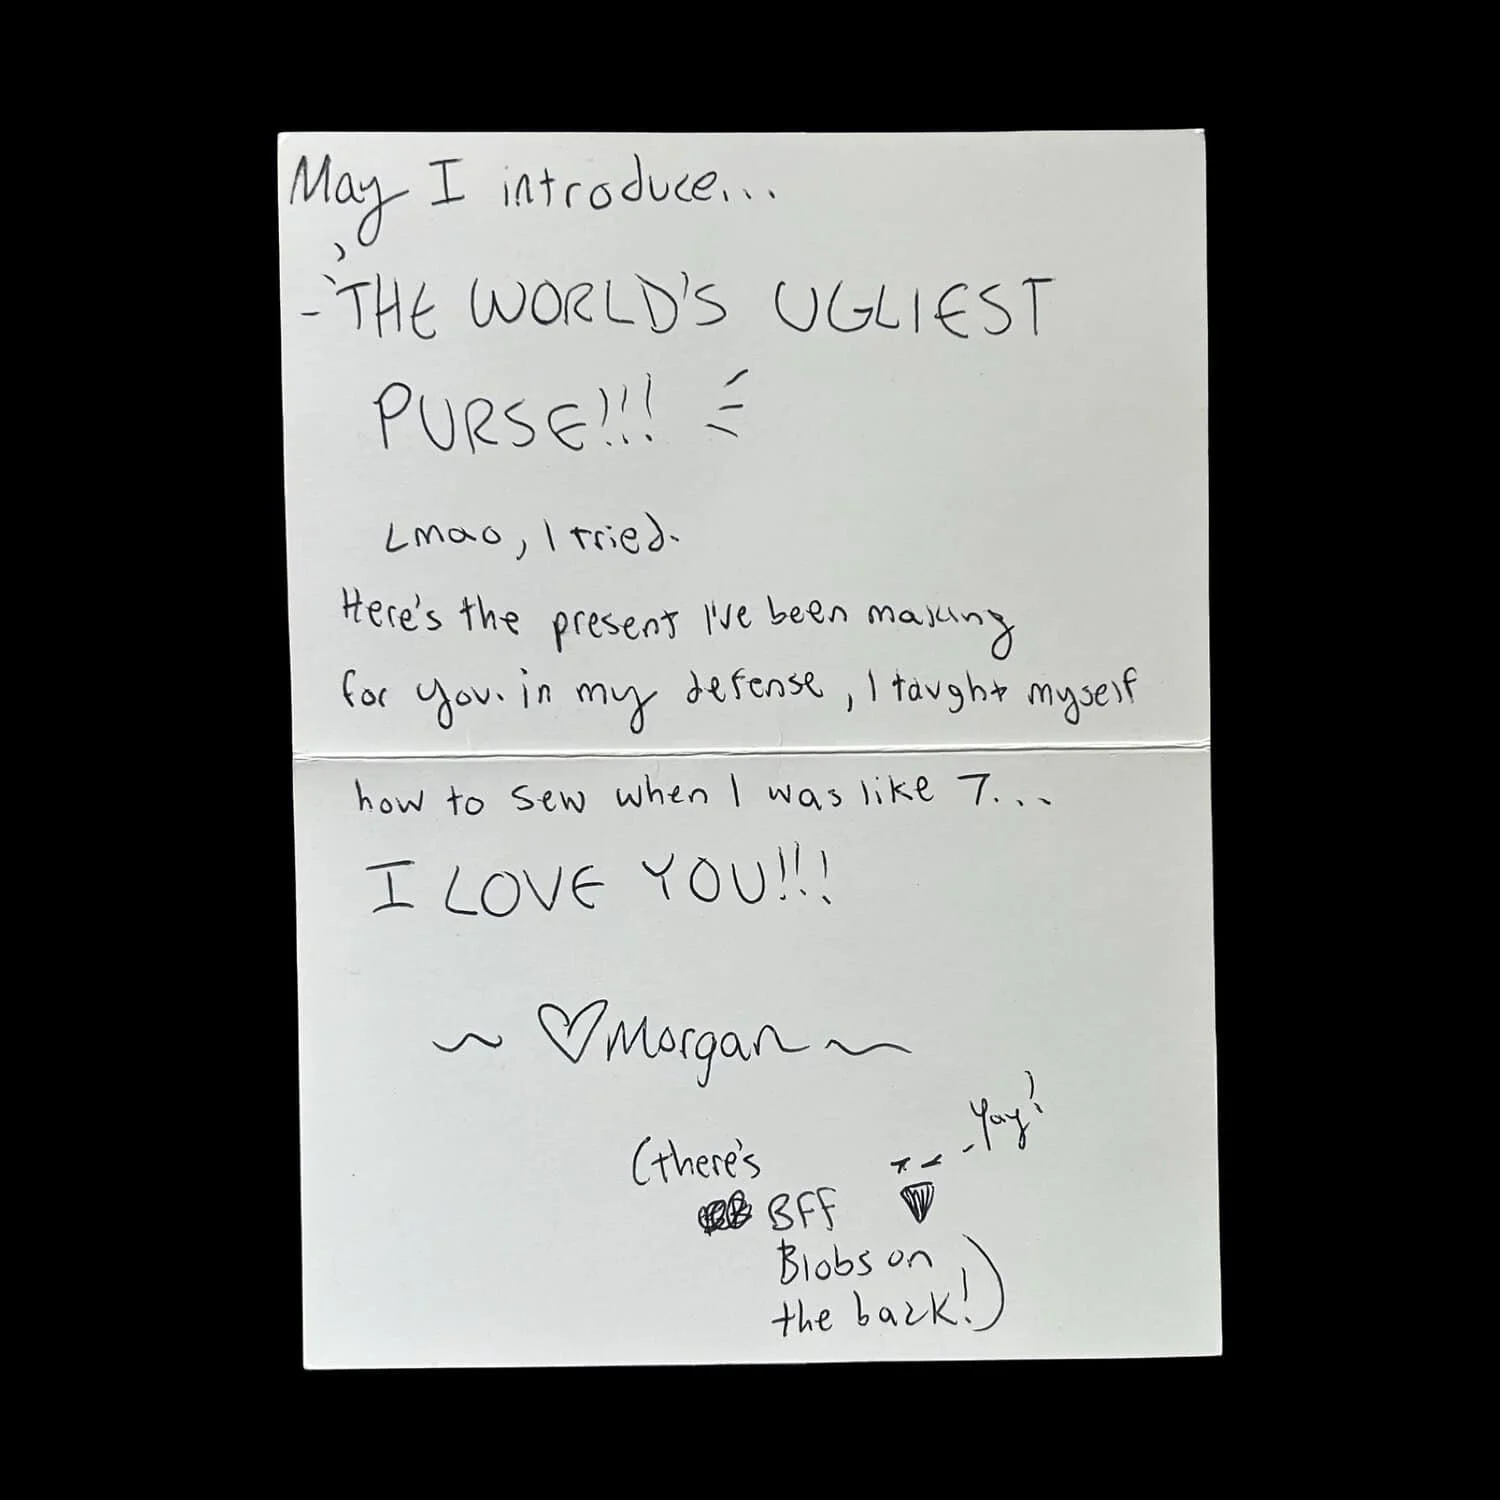 May I introduce...
THE WORLD'S UGLIEST
PURSE!!!
Lmao, I tried.
Here's the present I've been making
for you. in my defense, I taught myself
how to sew when I was like 7...
I LOVE YOU!!!
~ ♡Morgan ~
Yay!
(there's
BFF
Blobs on
the back!)